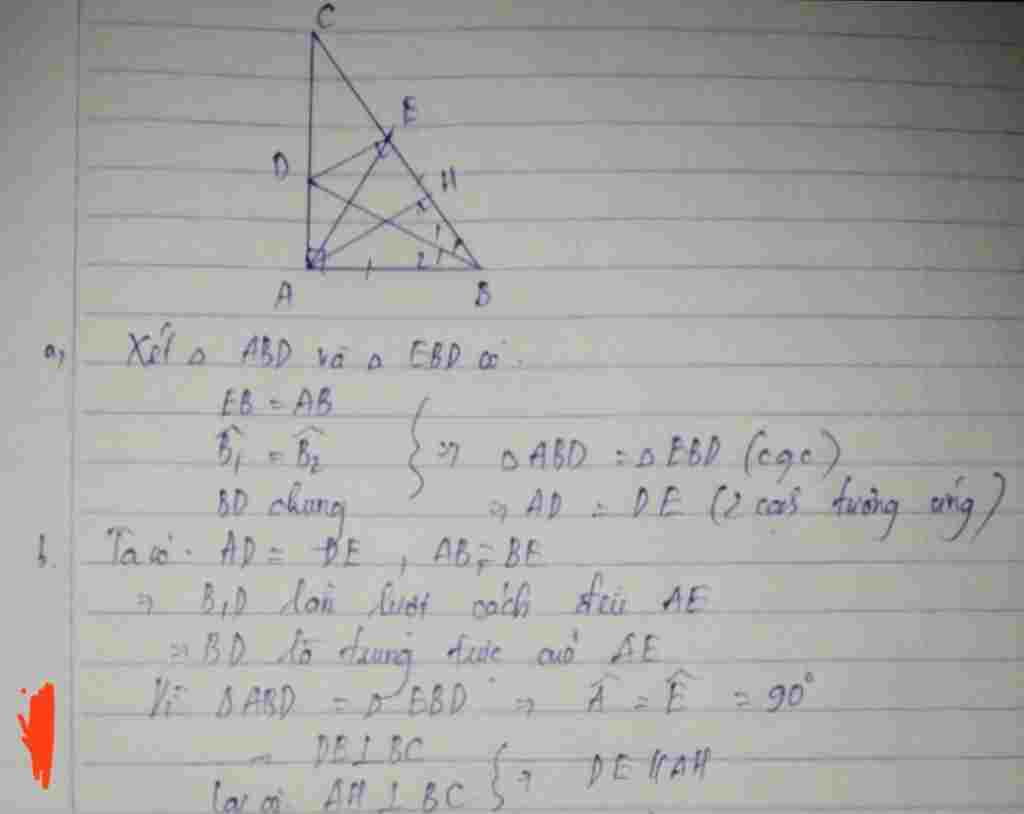 C
E
D
H
1
2
A
B
a, Xét Δ ABD và Δ EBD có:
EB = AB
B̂₁ = B̂₂
BD chung
} => Δ ABD = Δ EBD (cgc)
=> AD = DE (2 cạnh tương ứng)
b. Ta có: AD = DE, AB = BE
=> B,D lần lượt cách đều AE
=> BD là trung trực của AE
Vì Δ ABD = Δ EBD => Â = Ê = 90°
DE ⊥ BC
Lại có AH ⊥ BC } => DE // AH